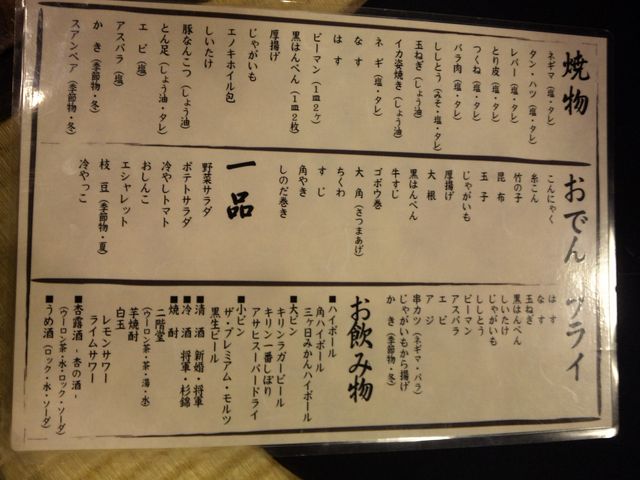 焼物
ネギマ（塩・タレ）
タン・ハツ（塩・タレ）
レバー（塩・タレ）
とり皮（塩・タレ）
つくね（塩・タレ）
バラ肉（塩・タレ）
ししとう（みそ・塩・タレ）
玉ねぎ（しょう油）
イカ姿焼き（しょう油）
ネギ（塩・タレ）
なす
はす
ピーマン（1皿2ヶ）
黒はんぺん（1皿2枚）
厚揚げ
じゃがいも
エノキホイル包
しいたけ
豚なんこつ（しょう油）
とん足（しょう油・タレ）
エビ（塩）
アスパラ（塩）
かき（季節物・冬）
スアンペア（季節物・冬）
おでん
こんにゃく
糸こん
竹の子
昆布
玉子
じゃがいも
厚揚げ
大根
黒はんぺん
牛すじ
ゴボウ巻
大角（さつまあげ）
ちくわ
すじ
角やき
しのだ巻き
一品
野菜サラダ
ポテトサラダ
冷やしトマト
おしんこ
エシャレット
枝豆（季節物・夏）
冷やっこ
フライ
はす
なす
玉ねぎ
黒はんぺん
しいたけ
じゃがいも
ししとう
ピーマン
アスパラ
エビ
アジ
串カツ（ネギマ・バラ）
じゃがいもから揚げ
かき（季節物・冬）
お飲み物
■ハイボール
角ハイボール
三ヶ日みかんハイボール
■大ビン
キリンラガービール
キリン一番しぼり
アサヒスーパードライ
■小ビン
ザ・プレミアム・モルツ
黒生ビール
■清酒 新婚・将軍
■冷酒 将軍・杉錦
■焼酎
二階堂
（ウーロン茶・茶・湯・水）
芋焼酎
白玉
レモンサワー
ライムサワー
■杏露酒 - 杏の酒 -
（ウーロン茶・水・ロック・ソーダ）
■うめ酒（ロック・水・ソーダ）